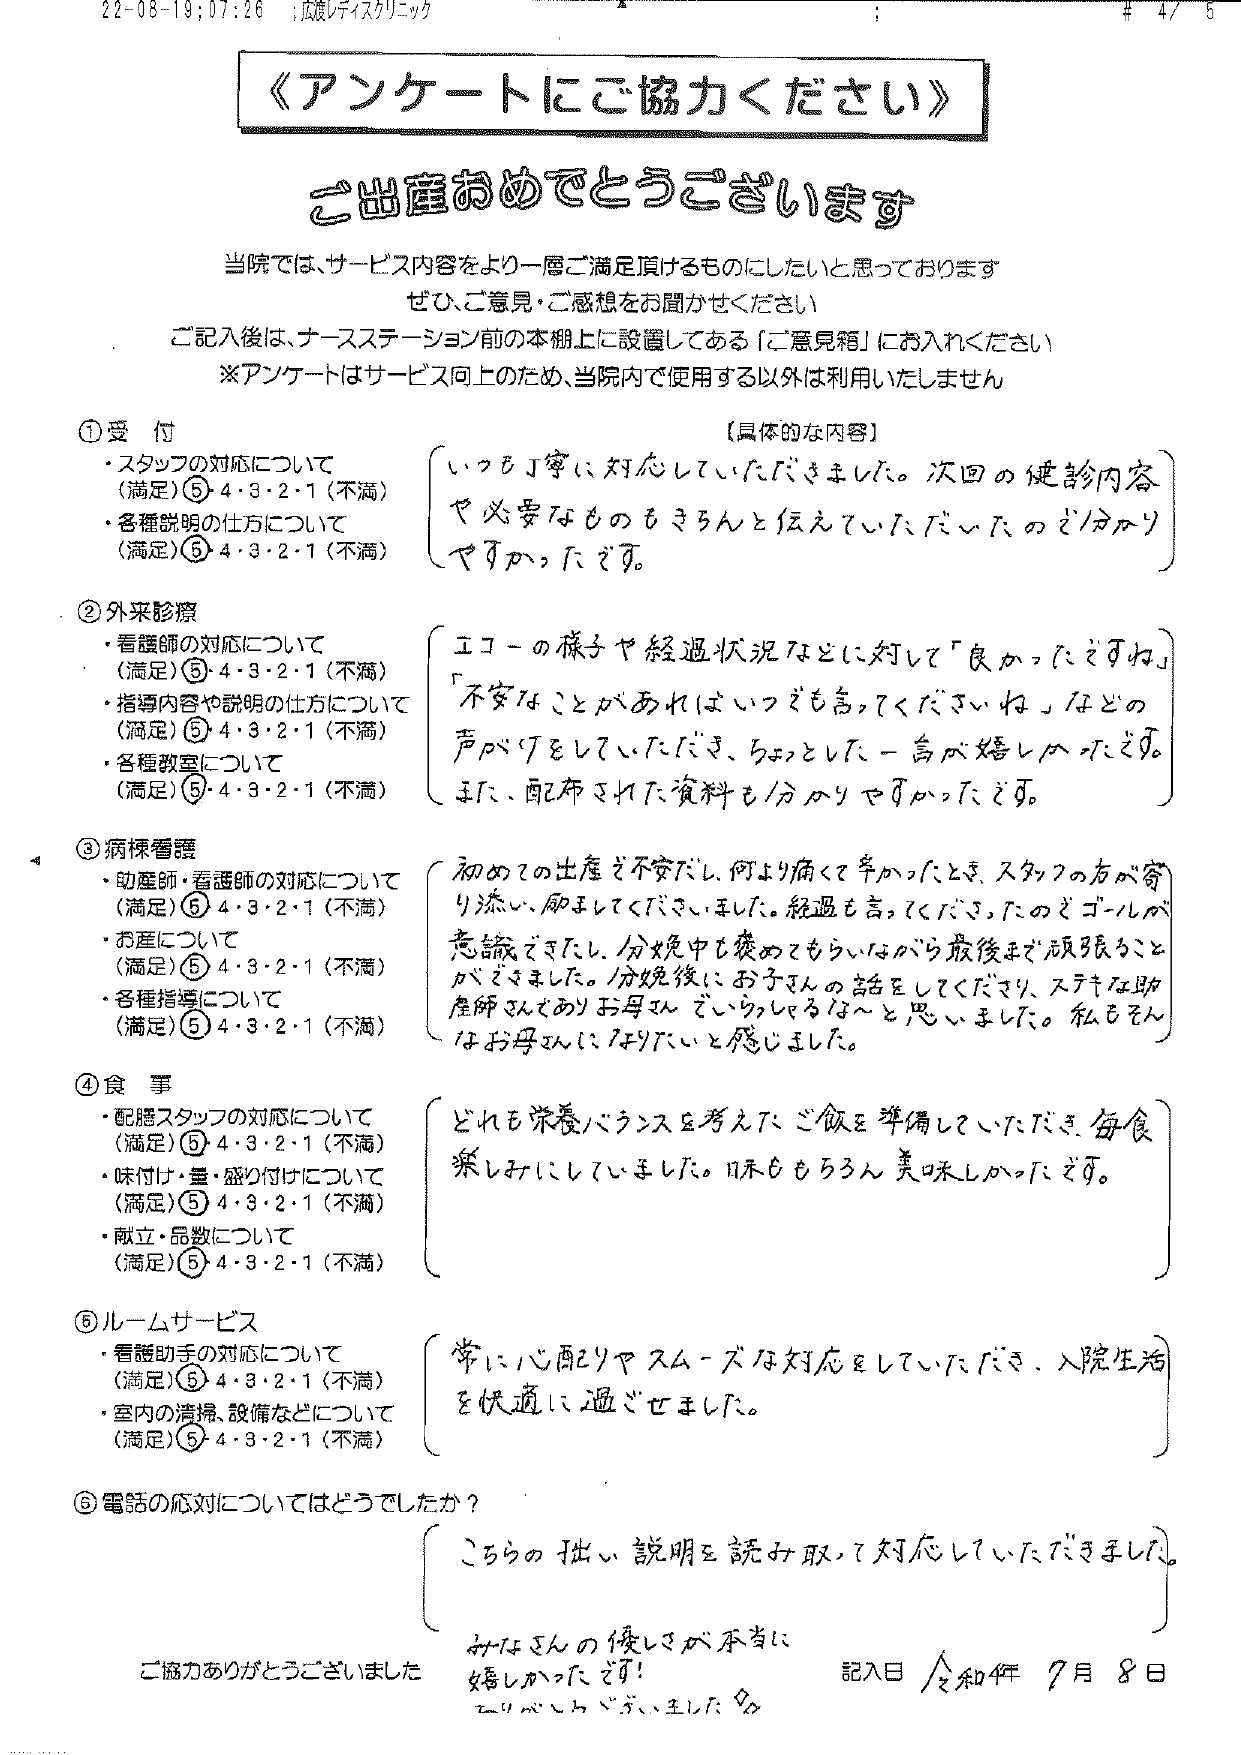 22-08-19;07:26 ;広渡レディスクリニック ; # 4/ 5
《アンケートにご協力ください》
ご出産おめでとうございます
当院では、サービス内容をより一層ご満足頂けるものにしたいと思っております
ぜひ、ご意見・ご感想をお聞かせください
ご記入後は、ナースステーション前の本棚上に設置してある「ご意見箱」にお入れください
※アンケートはサービス向上のため、当院内で使用する以外は利用いたしません
①受 付
【具体的な内容】
・スタッフの対応について
(満足)⑤・4・3・2・1(不満)
・各種説明の仕方について
(満足)⑤・4・3・2・1(不満)
いつも丁寧に対応していただきました。次回の健診内容
や必要なものもきちんと伝えていただいたので分かり
やすかったです。
②外来診療
・看護師の対応について
(満足)⑤・4・3・2・1(不満)
・指導内容や説明の仕方について
(満足)⑤・4・3・2・1(不満)
・各種教室について
(満足)⑤・4・3・2・1(不満)
エコーの様子や経過状況などに対して「良かったですね」
「不安なことがあればいつでも言ってくださいね」などの
声がけをしていただき、ちょっとした一言が嬉しかったです。
また、配布された資料も分かりやすかったです。
③病棟看護
・助産師・看護師の対応について
(満足)⑤・4・3・2・1(不満)
・お産について
(満足)⑤・4・3・2・1(不満)
・各種指導について
(満足)⑤・4・3・2・1(不満)
初めての出産で不安だし、何より痛くて辛かったとき、スタッフの方が寄
り添い、励ましてくださいました。経過も言ってくださったのでゴールが
意識できたし、分娩中も褒めてもらいながら最後まで頑張ること
ができました。分娩後にお子さんの話をしてくださり、ステキな助
産師さんでありお母さんでいらっしゃるな〜と思いました。私もそん
なお母さんになりたいと感じました。
④食 事
・配膳スタッフの対応について
(満足)⑤・4・3・2・1(不満)
・味付け・量・盛り付けについて
(満足)⑤・4・3・2・1(不満)
・献立・品数について
(満足)⑤・4・3・2・1(不満)
どれも栄養バランスを考えたご飯を準備していただき、毎食
楽しみにしていました。味ももちろん美味しかったです。
⑤ルームサービス
・看護助手の対応について
(満足)⑤・4・3・2・1(不満)
・室内の清掃、設備などについて
(満足)⑤・4・3・2・1(不満)
常に心配りやスムーズな対応をしていただき、入院生活
を快適に過ごせました。
⑥電話の応対についてはどうでしたか?
こちらの拙い説明を読み取って対応していただきました。
みなさんの優しさが本当に
嬉しかったです!
ありがとうございました
ご協力ありがとうございました
記入日 令和4年 7月 8日